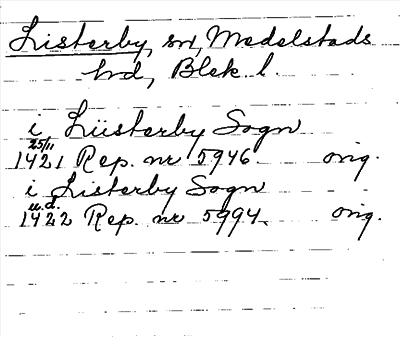 Listerby, sn, Medelstads
hd, Blek. l.
i Lüsterby Sogn
25/11
1421 Rep. nr 5946. orig.
i Listerby Sogn
u.d.
1422 Rep. nr 5994. orig.